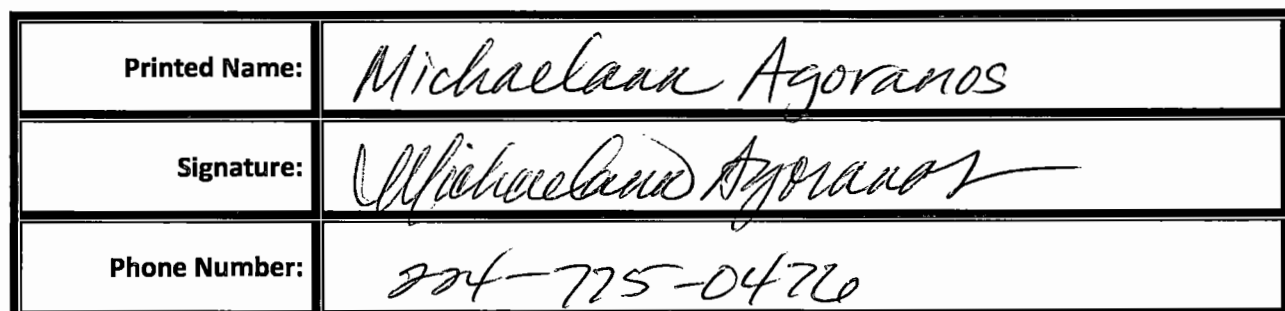 Printed Name: Michaelann Agoranos
Signature: Michaelann Agoranos
Phone Number: 224-775-0476